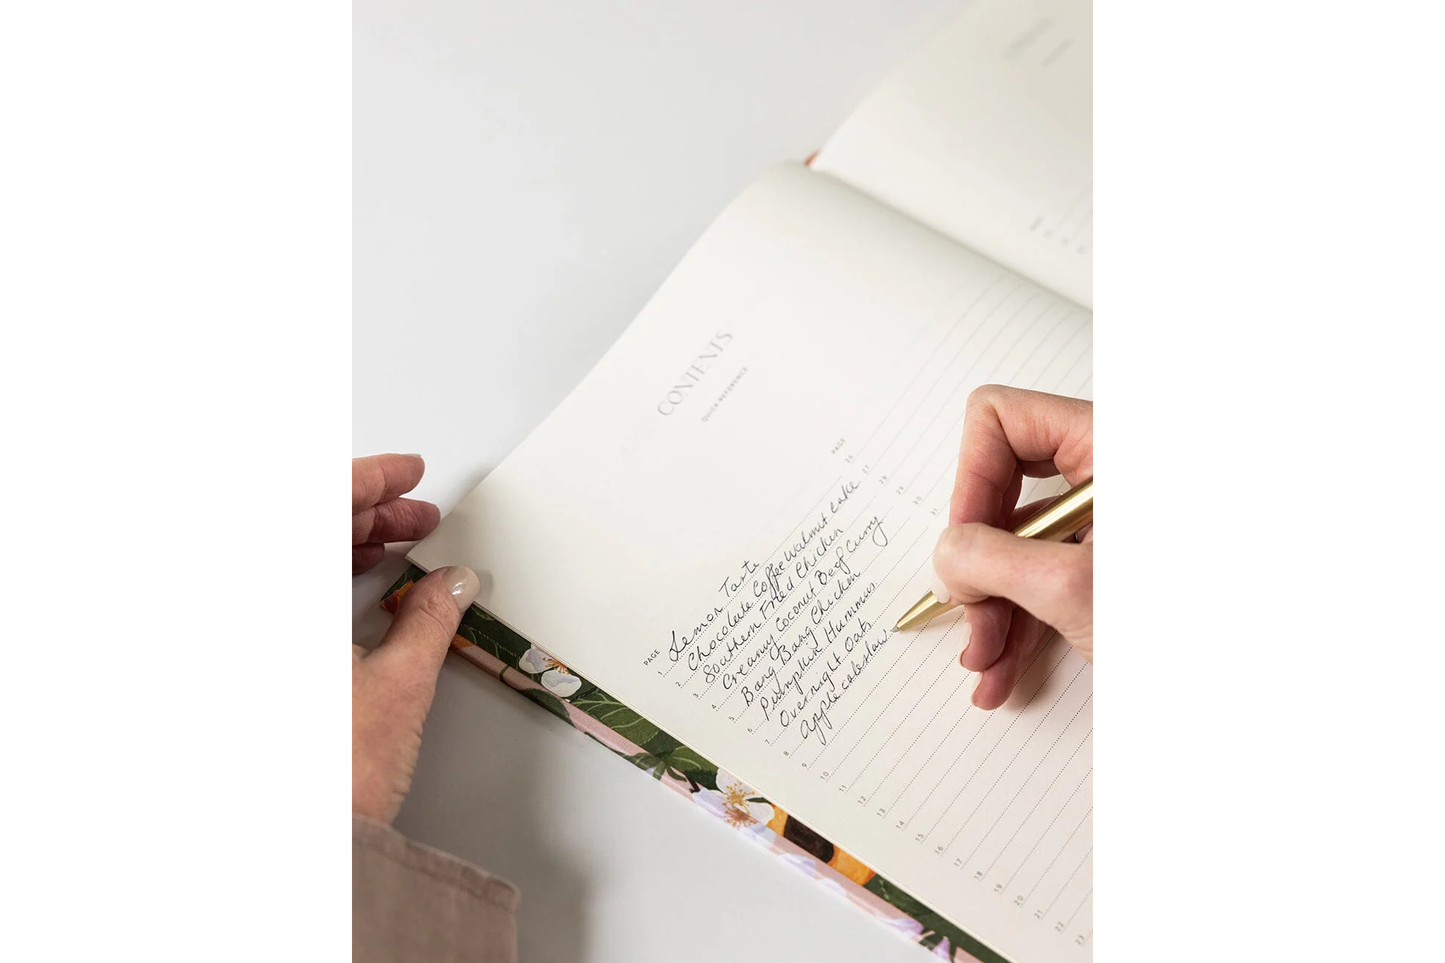 CONTENTS
QUICK REFERENCE
PAGE
1 Lemon Taste
2 Chocolate Coffee Walnut Cake
3 Southern Fried Chicken
4 Creamy Coconut Beef Curry
5 Bang Bang Chicken
6 Pumpkin Hummus
7 Overnight Oats
8 Apple coleslaw
9
10
11
12
13
14
15
16
17
18
19
20
21
22
23
PAGE
26
27
28
29
30
31